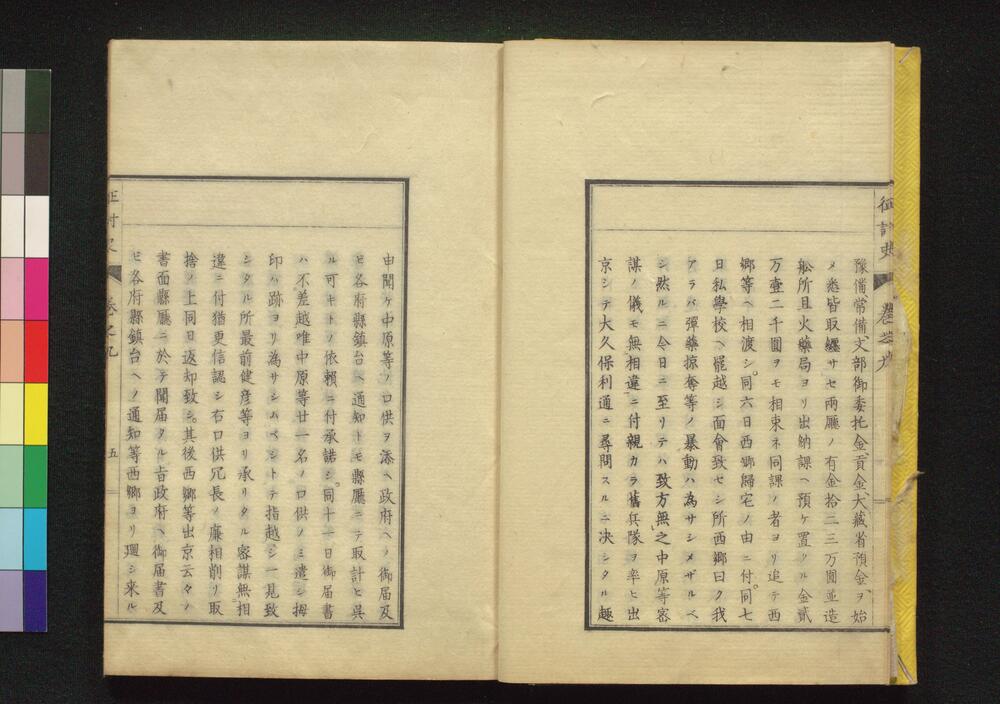 征討史
卷之九
豫備常備文部御委托金貢金大藏省預金ヲ始
メ悉皆取纒サセ兩廳ノ有金拾二三万圓並造
舩所且火藥局ヨリ出納課ヘ預ケ置クル金貳
万壹二千圓ヲモ相束ネ同課ノ者ヨリ追テ西
郷等ヘ相渡シ同六日西郷歸宅ノ由ニ付同七
日私學校ヘ罷越シ面會致セシ所西郷曰ク我
アラバ彈藥掠奪等ノ暴動ハ為サシメザルベ
シ然ルニ今日ニ至リテハ致方無之中原等密
謀ノ儀モ無相違ニ付親カラ舊兵隊ヲ率ヒ出
京シテ大久保利通ニ尋問スルニ决シタル趣
申聞ケ中原等ノ口供ヲ添ヘ政府ヘノ御届及
ヒ各府縣鎮台ヘ通知トモ縣廳ニテ取計ヒ呉
ル可キトノ依賴ニ付承諾シ同十一日御届書
ハ不差越唯中原等廿一名ノ口供ノミ遣シ拇
印ハ跡ヨリ為サシムベシトテ指越シ一見致
シタル所最前健彦等ヨリ承リタル密謀無相
違ニ付猶更信認シ右口供冗長ノ廉相削リ取
捨ノ上同日返却致シ其後西郷等出京云々ノ
書面縣廳ニ於テ聞届タル旨政府ヘ御届書及
ヒ各府縣鎮台ヘノ通知等西郷ヨリ廻シ来ル
征討史
卷之九
五